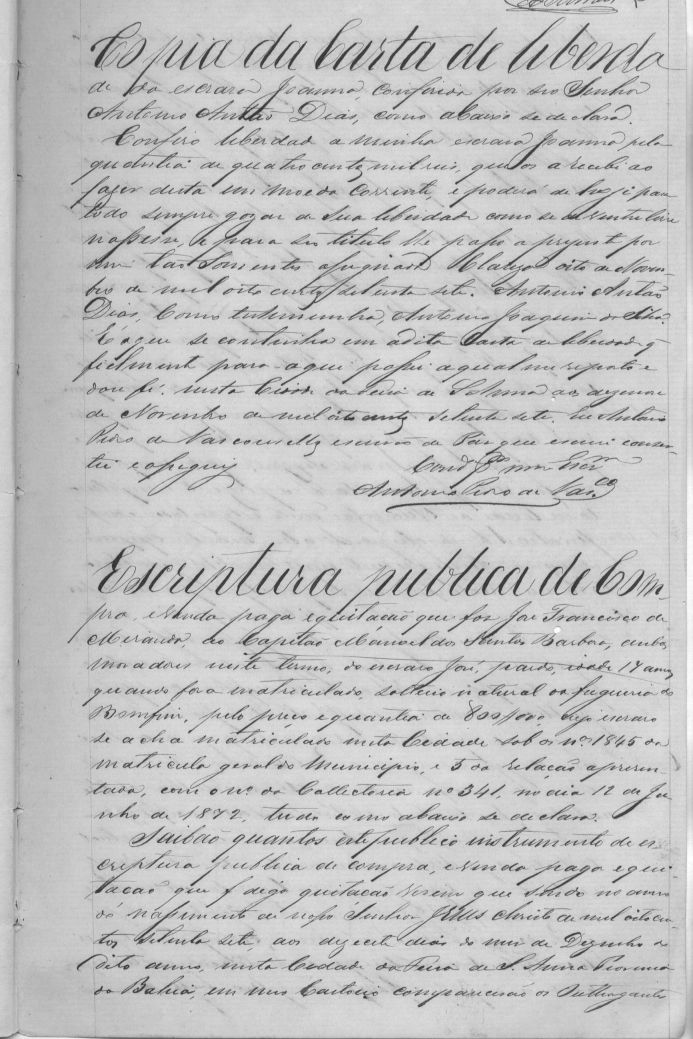 Copia da Carta de liberda
de da escrava Joanna, conferida por seu Senhor
Antonio Antão Dias, como abaixo se declara.
Confiro liberdade a minha escrava Joanna pela
quantia de quatro centos mil reis, que os a recebi ao
fazer desta em moeda corrente, e poderá de hoje para
todo sempre gozar de sua liberdade como se de ventre livre
nascesse, e para seu titulo lhe passo a presente por
mim tão somente assignada oito de Novem
bro de mil oito centos setenta sete. Antonio Antão
Dias, Como testemunha, Antonio Joaquim da Sª.
E o que se continha em a dita Carta de liberdade q
fielmente para aqui passei a qual me reporto e
dou fé. nesta Cidade da Feira de S. Anna aos dezenove
de Novembro de mil oito centos setenta sete. Eu Antonio
Pedro de Vascocellos escrivão de Paz que escrevi concer
tei e assignei
Antonio Pedro de Vas.cos
Escriptura publica de Com
pra, e venda paga e quitação que faz José Francisco de
Miranda, ao Capitão Manoel dos Santos Barbosa, ambos
moradores neste termo, do escravo José, pardo, idade 17 annos
quando fora matriculado, solteiro natural da freguesia do
Bomfim, pelo preço e quantia de 800$000, cujo escravo
se acha matriculado nesta Cidade sob os nos. 1845 da
matricula geral do Municipio, e 5 da relação apresen
tada, com o nº da Collectoria nº 341, no dia 12 de Ju
nho de 1872, tudo como abaixo se declara.
Saibão quantos este publico instrumento de es
criptura publica de compra, e venda paga e qui
tacão que f digo quitação virem que sendo no anno
do nascimento de nosso Senhor Jesus Christo de mil oito cen
tos setenta sete aos dezesete dias do mez de Dezembro do
dito anno, nesta Cidade da Feira de S. Anna Provincia
da Bahia, em meu Cartorio comparecerão os Outhorgantes